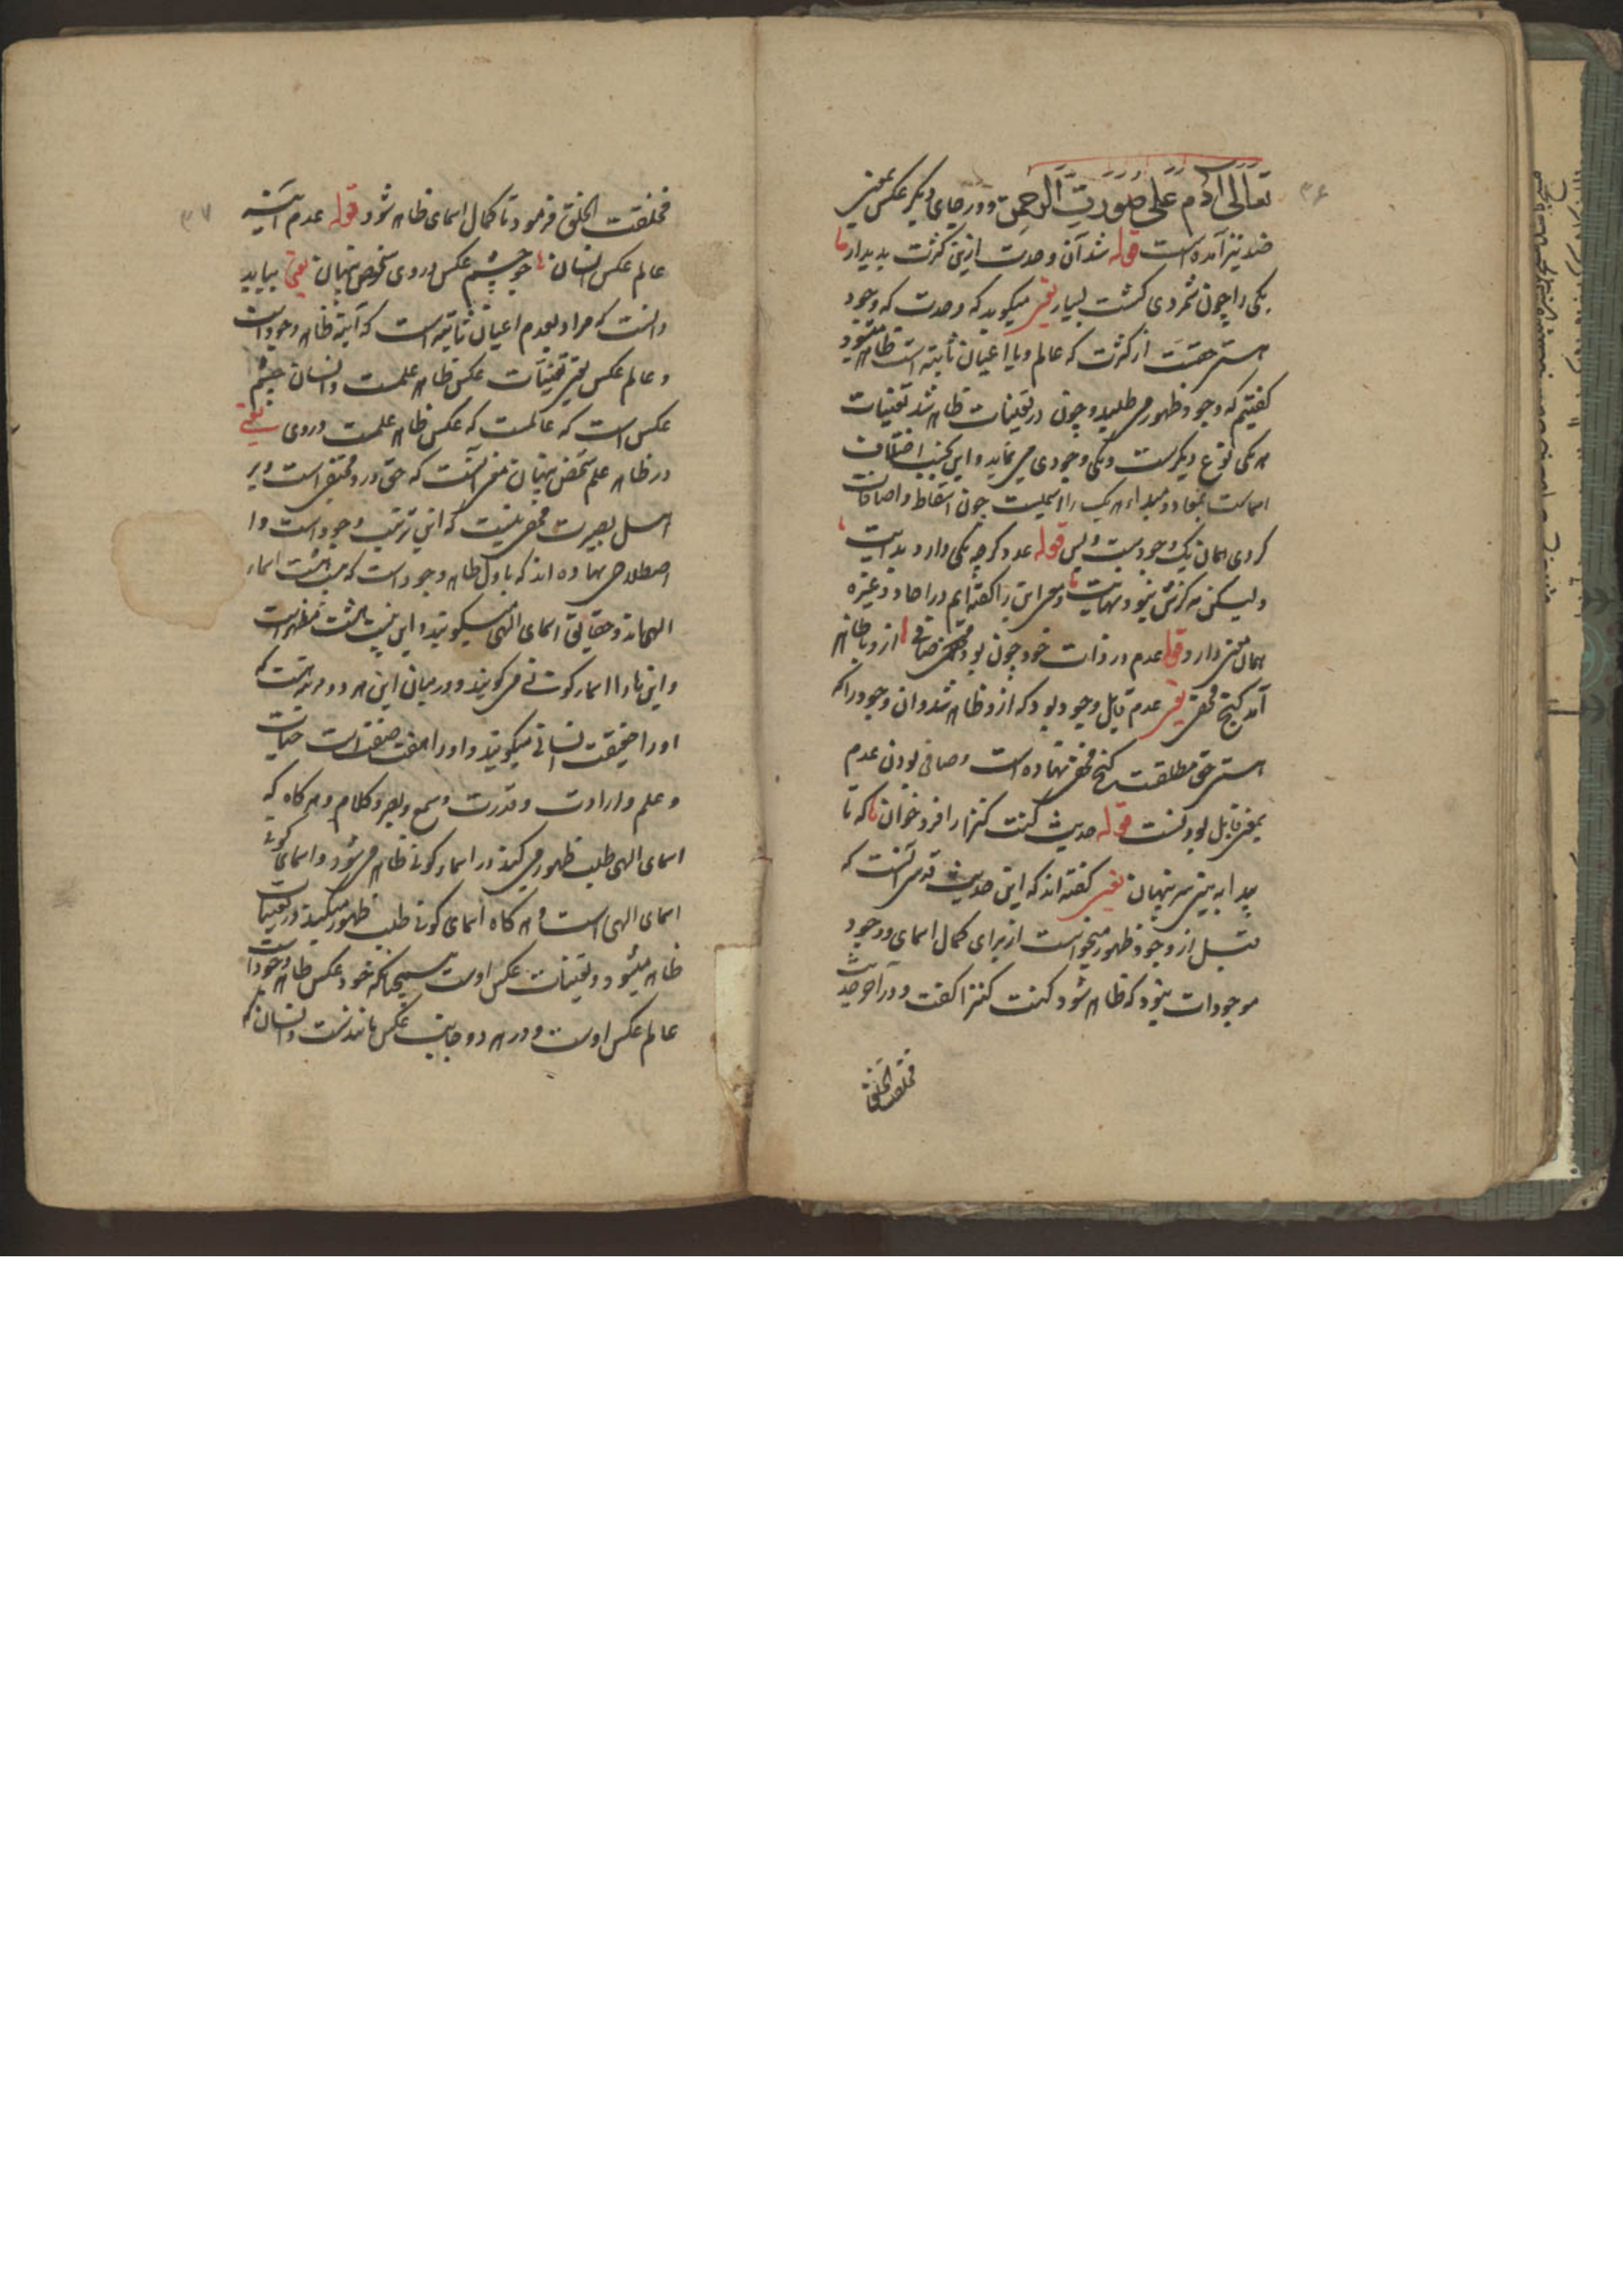 ۳۶
تعالی آدم علی صورت الرحمن و در جای دیگر عکس بمعنی
ضد نیز آمده است قوله شد آن وحدت ازین کثرت پدیدار
یکی را چون شمردی گشت بسیار یعنی میگوید که وحدت که وجود
هستی حقست از کثرت که عالم و یا اعیان ثابته است ظاهر میشود
گفتیم که وجود ظهور می طلبید و چون در تعینات ظاهر شد تعینات
هر یکی نوع دیگرست و یکی وجودی می نماید و این بحسب اختلاف
اسماست بمعاد و مبداء هر یک را اسمیست چون اسقاط و اضافات
کردی همان یک وجودست و بس قوله عدد گرچه یکی دارد بدایت
ولیکن هرگزش نبود نهایت و معنی این را گفته ایم در احاد و غیره
همان معنی دارد قوله عدم در ذات خود چون بود صافی ازو با ظاهر
آمد گنج مخفی یعنی عدم قابل وجود بود که ازو ظاهر شد و آن وجود را که
هستی حق مطلقست گنج مخفی نهاده است و صافی بودن عدم
بمعنی قابل بودنست قوله حدیث کنت کنزا را فرو خوان که تا
پیدا به بینی سر پنهان یعنی گفته اند که این حدیث قدسی آنست که
قبل از وجود ظهور میخواست از برای کمال اسمای و وجود
موجودات نبود که ظاهر شود کنت کنزا گفت و در آخر حدیث
فخلقت الخلق
۳۷
فخلقت الخلق فرمود تا کمال اسمای ظاهر شود قوله عدم آیینه
عالم عکس انسان چو چشم عکس در وی شخص پنهان یعنی بباید
دانست که مراد بعدم اعیان ثابته است که آینه ظاهر وجود است
و عالم عکس یعنی تعینات عکس ظاهر علمست و انسان چشم
عکس است که عالمست که عکس ظاهر علمست در وی یعنی
در ظاهر علم شخص پنهان معنی آنست که حق در و مختفی است و بر
اهل بصیرت مخفی نیست که این ترتیب وجود است و ا
اصطلاحی نهاده اند که باول ظاهر وجود است که بیست و هشت اسماء
الهی اند و حقایق اسمای الهی میگویند و این بیست و هشت مظهر است
و این نا را اسماء کونی می گویند و در میان این هر دو مرتبه است که
او را حقیقت انسانی میگویند و او را هفت صفت است حیات
و علم و ارادت و قدرت و سمع و بصر و کلام و هر گاه که
اسمای الهی طلب ظهور می کند در اسماء کونی ظاهر می شود و اسمای کونی
اسمای الهی است و هر گاه اسمای کونی طلب ظهور میکند در تعینات
ظاهر میشود و تعینات عکس اوست همچنانکه خود عکس ظاهر وجود است
عالم عکس اوست و در هر دو جانب عکس مانندست و انسان که